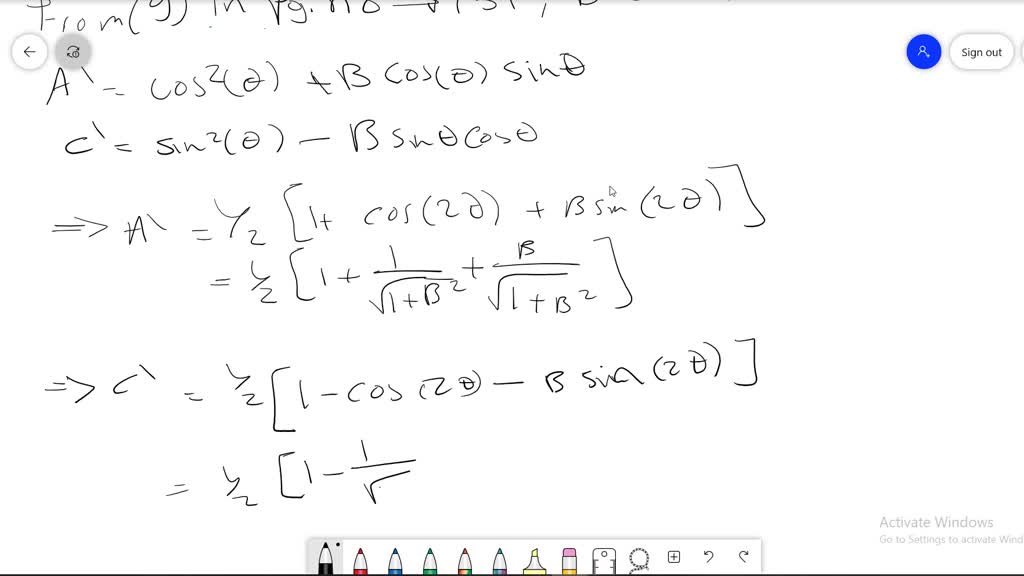 From (9) in pg. no
Sign out
A' = cos²(θ) + B cos(θ) sinθ
C' = sin²(θ) - B sinθ cosθ
=> A' = 1/2 [1 + cos(2θ) + B sin(2θ)]
= 1/2 [1 + 1/√(1+B²) + B/√(1+B²)]
=> C' = 1/2 [1 - cos(2θ) - B sin(2θ)]
= 1/2 [1 - 1/√
Activate Windows
Go to Settings to activate Wind